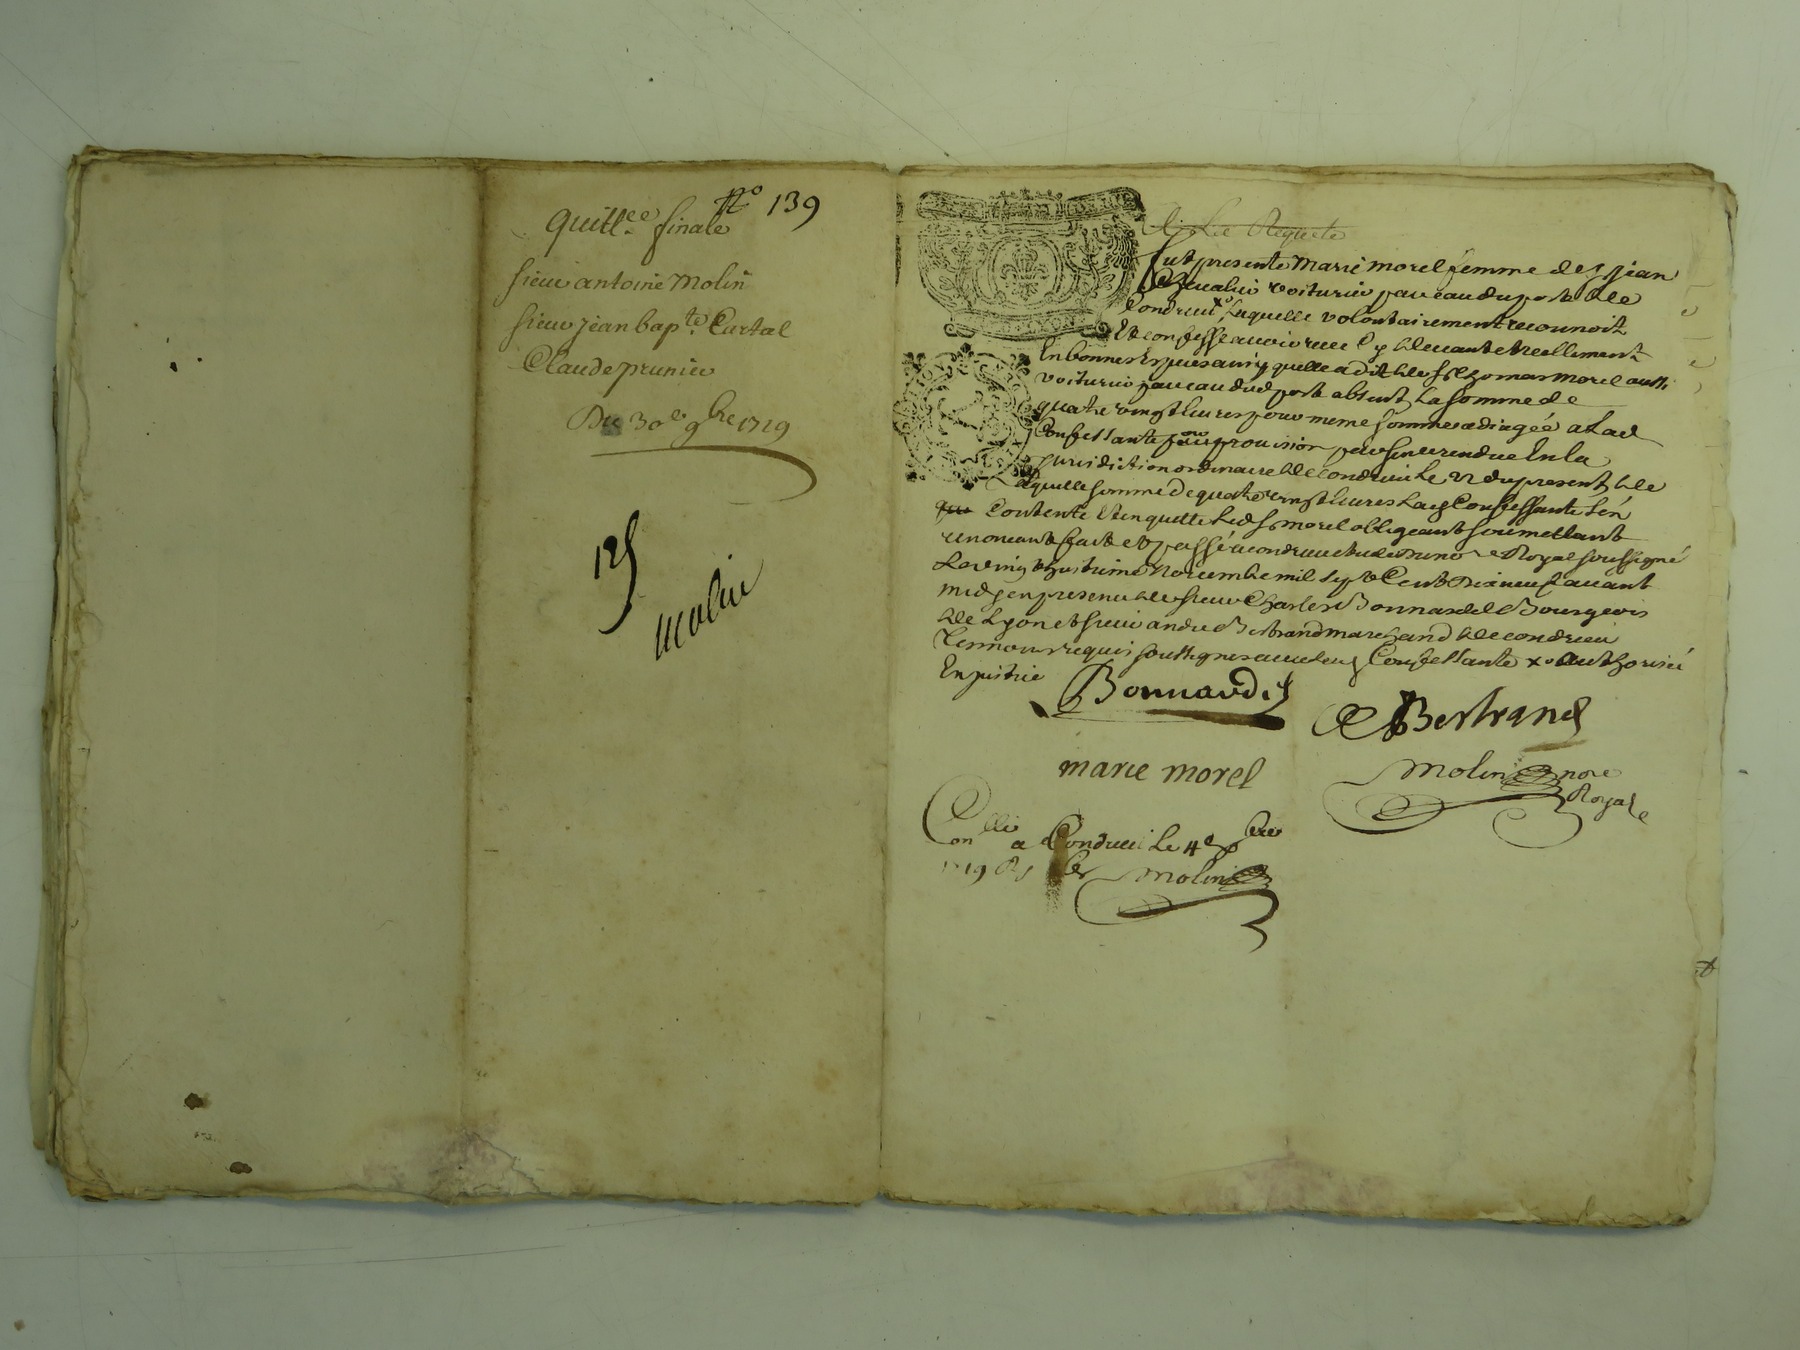 N.o 139
quitt.ce finale
sieur antoine Molin
sieur jean bap.te Curtal
Claude prunier
Du 30.e 9bre 1719
Molin
A La Requete
fut presente Marie morel femme de s.r jean
Chevalier voiturier par eau du port de
Condrieu x.o Laquelle volontairement reconnoit
Et confesse avoir receu cy devant et reellement
En bonnes Especes ainsy quelle a dit de s.r thomas morel aussi
voiturier par eau dud port absent La somme de
quatre vingt livres pour meme somme adiugée a Lad
Confessante par provision par sentence rendue En la
jurisdiction ordinaire de condrieu Le du present de
Laquelle somme de quatre vingt livres Lad Confessante s'en
Contente Et en quitte Led s.r morel obligeant soumettant
renoncant fait et passé a condrieu etude du no.re Royal soussigné
Le vingt huitieme Novembre mil sept Cent Dix neuf avant
midy en presence de sieur Charles Bonnardel Bourgeois
de Lyon et sieur andre Bertrand marchand de condrieu
Temoins requis soussignes avec lad Confessante x.o authorisée
En justice
Bonnardel
A Bertrand
marie morel
Molin no.re
Royal
Con.llé a Condrieu Le 4.e x.bre
1719 Rs
Molin